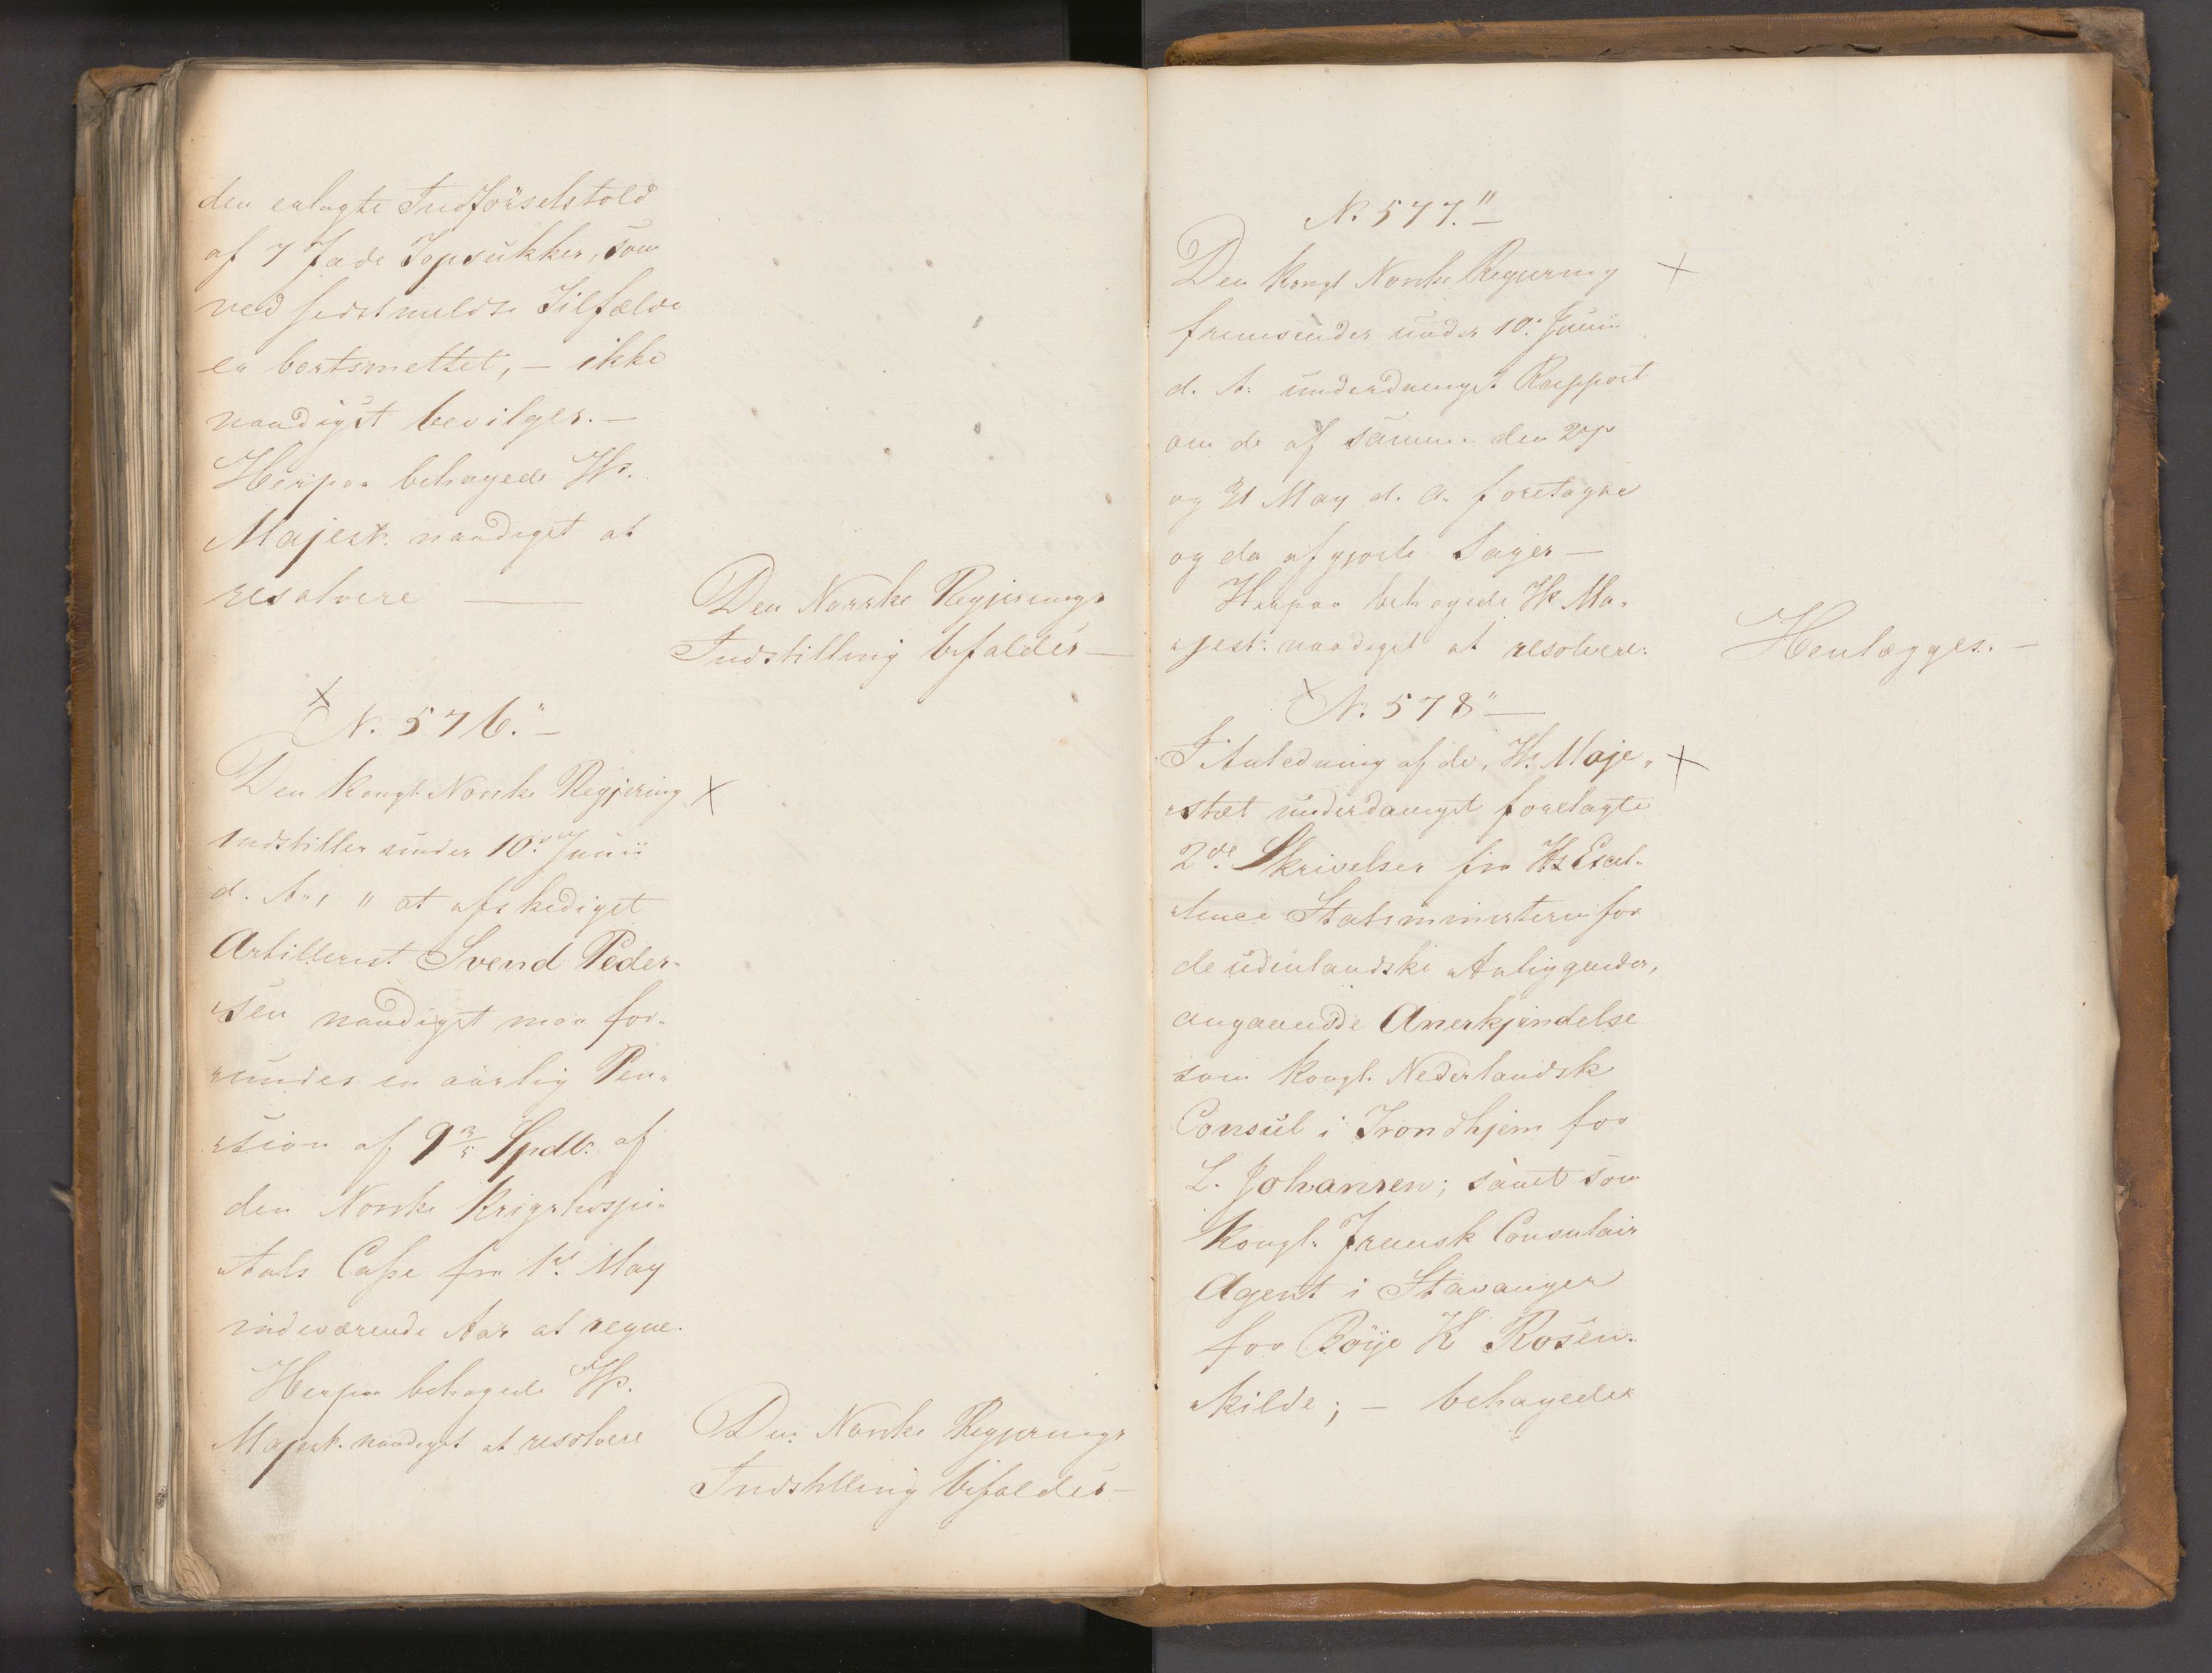 den erlagte Indförselstold
af 7 Fade Topsukker, som
ved sidstmeldte Tilfælde
er bortsmeltet, – ikke
naadigst bevilges. –
Herpaa behagede Hs.
Majest. naadigst at
resolvere —
Den Norske Regjerings
Indstilling bifaldes –
N. 576." –
Den Kongl. Norske Regjering
indstiller under 10. Junii
d. A., " at afskediget
Artillerist Svend Peder-
"sen naadigst maa for-
"undes en aarlig Pen-
"sion af 9 3/5 Spdlr. af
den Norske Krigshospi-
"tals Casse fra 1st. May
indeværende Aar at regne.
Herpaa behagede Hs.
Majest. naadigst at resolvere
Den Norske Regjerings
Indstilling bifaldes –
N. 577." –
Den Kongl. Norske Regjering
fremsender under 10. Junii
d. A. underdanigst Rapport
om de af samme den 27
og 31 May d. A. foretagne
og da afgjorte Sager –
Herpaa behagede Hs Ma-
"jest: naadigst at resolvere:
Henlægges. –
N. 578" –
I Anledning af de, Hs. Maje-
"stæt underdanigst forelagte
2de Skrivelser fra Hs Exel-
"lence Statsministeren for
de udenlandske Anliggender,
angaaende Anerkjendelse
som Kongl. Nederlandsk
Consul i Trondhjem for
L. Johansen; samt som
Kongl. Fransk Consulair
Agent i Stavanger
for Böije H Rosen-
"kilde; – behagede